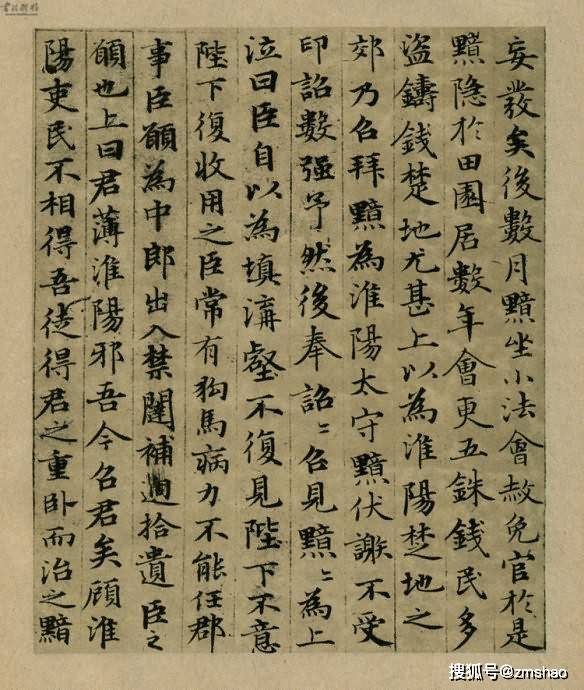 妄發矣後數月黯坐小法會赦免官於是
黯隐於田園居數年會更五銖錢民多
盜鑄錢楚地尤甚上以為淮陽楚地之
郊乃召拜黯為淮陽太守黯伏謝不受
印詔數强予然後奉詔〻召見黯〻為上
泣曰臣自以為填溝壑不復見陛下不意
陛下復收用之臣常有狗馬病力不能任郡
事臣願為中郎出入禁闥補過拾遺臣之
願也上曰君薄淮陽邪吾今召君矣顧淮
陽吏民不相得吾徒得君之重卧而治之黯
搜狐号@zmshao